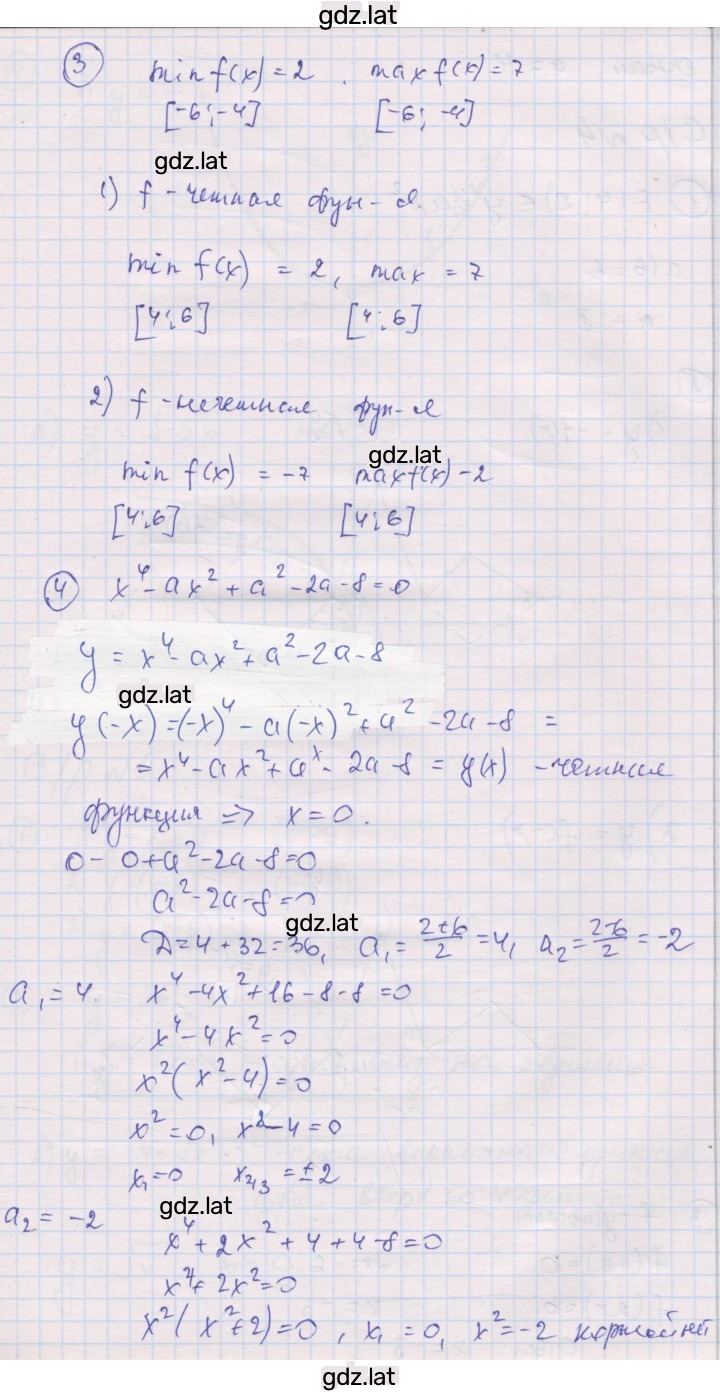 gdz.lat
3 min f(x) = 2 . max f(x) = 7
[-6; -4] [-6; -4]
gdz.lat
1) f - четная фун-я.
min f(x) = 2, max = 7
[4; 6] [4; 6]
2) f - нечетная фун-я
gdz.lat
min f(x) = -7 max f(x) - 2
[4; 6] [4; 6]
4 x⁴ - ax² + a² - 2a - 8 = 0
y = x⁴ - ax² + a² - 2a - 8
gdz.lat
y(-x) = (-x)⁴ - a(-x)² + a² - 2a - 8 =
= x⁴ - ax² + aˣ - 2a - 8 = y(x) - четная
функция => x = 0.
0 - 0 + a² - 2a - 8 = 0
a² - 2a - 8 = 0
gdz.lat
D = 4 + 32 = 36, a₁ = (2+6)/2 = 4, a₂ = (2-6)/2 = -2
a₁ = 4. x⁴ - 4x² + 16 - 8 - 8 = 0
x⁴ - 4x² = 0
x²(x² - 4) = 0
x² = 0, x² - 4 = 0
x₁ = 0 x₂,₃ = ±2
gdz.lat
a₂ = -2
x⁴ + 2x² + 4 + 4 - 8 = 0
x⁴ + 2x² = 0
x²(x² + 2) = 0, x₁ = 0, x² = -2 корней нет
gdz.lat